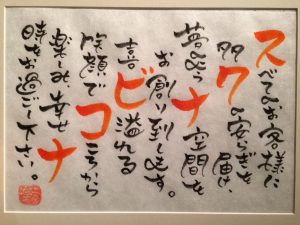 スべてのお客様に
多クの安らぎを届け、
夢のようナ空間を
お創り致します。
喜ビ溢れる
笑顔でコころから
楽しみ幸せナ
時をお過ごし下さい。